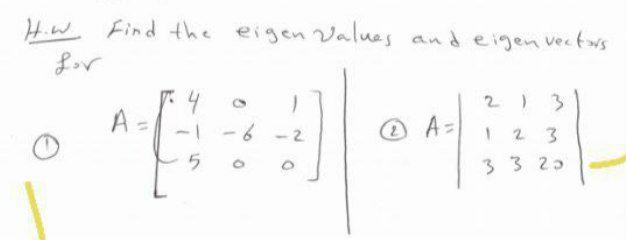 H.W Find the eigen values and eigen vectors
for
① A = [ 4 0 1
-1 -6 -2
5 0 0 ]
② A = | 2 1 3
1 2 3
3 3 20 |